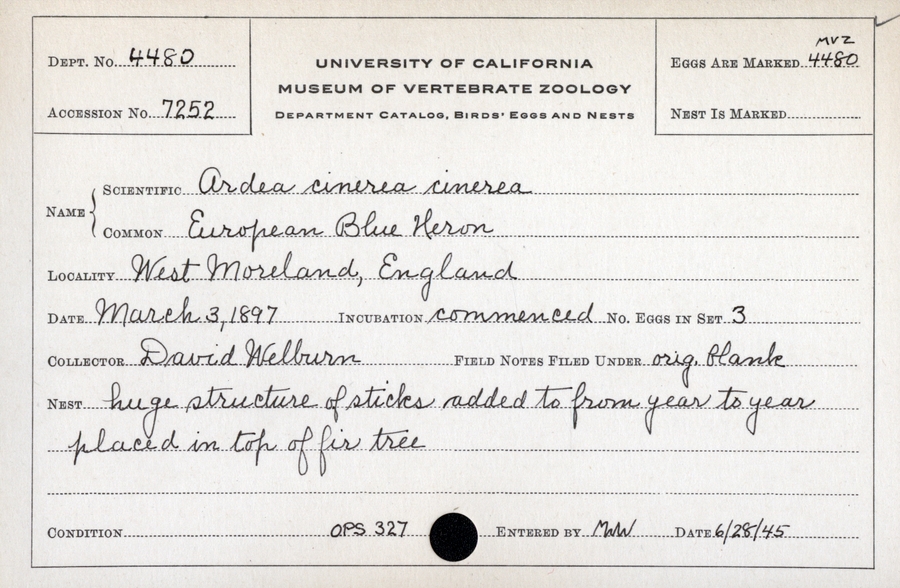 Dept. No. 4480
Accession No. 7252
UNIVERSITY OF CALIFORNIA
MUSEUM OF VERTEBRATE ZOOLOGY
Department Catalog, Birds' Eggs and Nests
MVZ
Eggs Are Marked 4480
Nest Is Marked
Name
Scientific Ardea cinerea cinerea
Common European Blue Heron
Locality West Moreland, England
Date March 3, 1897 Incubation commenced No. Eggs in Set 3
Collector David Welburn Field Notes Filed Under orig. blank
Nest huge structure of sticks added to from year to year
placed in top of fir tree
Condition OPS 327 Entered by MW Date 6/28/45